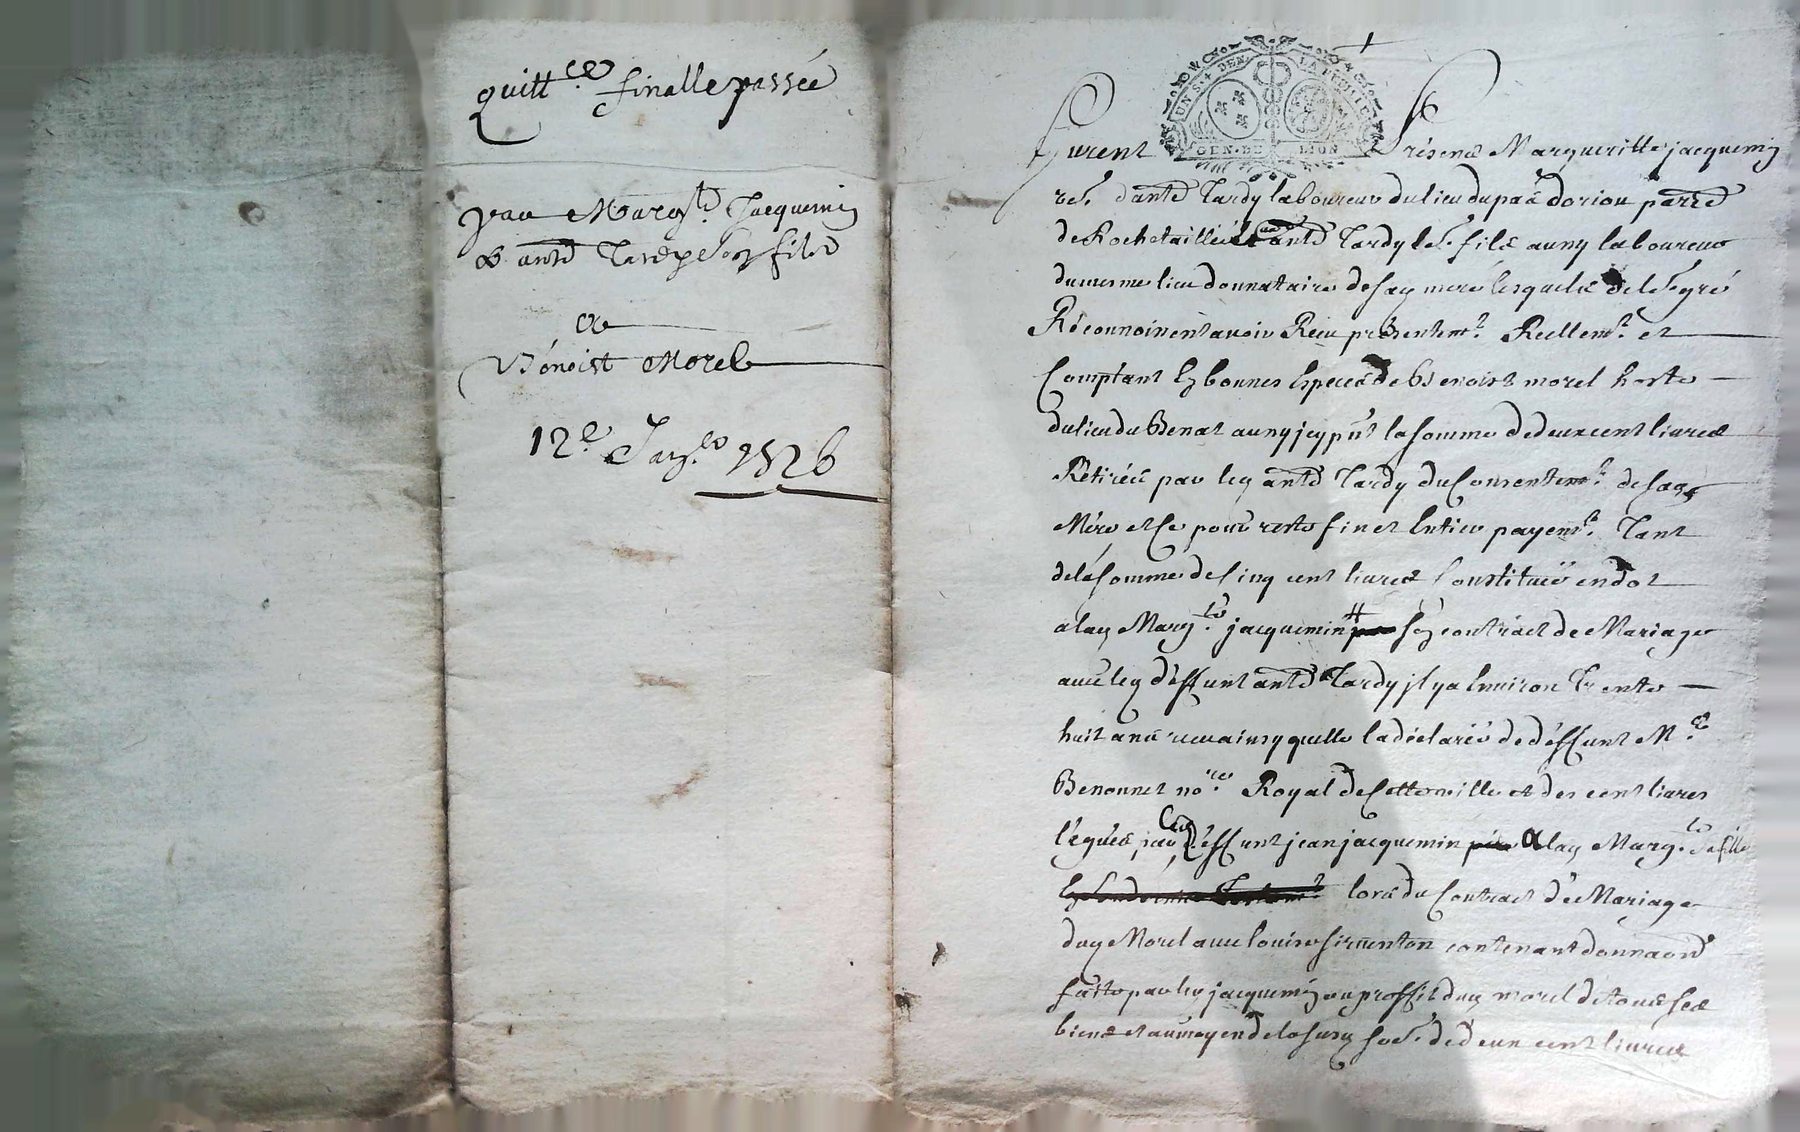 quitt.ce finalle passée
par Marg.te Jacquemin
& antd Tardy son fils
a
Bénoist Morel
12.e Janv.er 1726
UN S. 4 DEN. LA FEUILLE
GEN. DE LION
Furent Présens Margueritte jacquemin
ve. d'antd Tardy laboureur du lieu du paa d'oriou parre
de Rochetaillée & antd Tardy led. fils aussy laboureur
du mesme lieu donnataire de sad mere lesquels de led. gré
Réconnoissent avoir Reçu présentemt. Réellemt. et
Comptant en bonnes especes de Benoist morel hoste
du lieu du Benat aussy icy pnt la somme de deux cent livres
Rétirée par led antd Tardy du Consentemt. de sad
Mére et Ce pour reste fin et Entier payemt. Tant
de la somme de Cinq cent livres Constituée en dot
a lad Marg.te jacquemin par son contract de Mariage
avec led déffunt antd Tardy il y a Environ Trente
huit ans receu ainsy qu'elle la déclaré de déffunt M.e
Benonnet no.re Royal de Cette ville et des cent livres
légués par déffunt jean jacquemin a lad Marg.te sa fille
lors du Contract de Mariage
dud Morel avec louise contenant donnaon
faitte par led jacquemin au proffit dud morel de tous ses
biens et au moyen de la susd so.e de deux cent livres